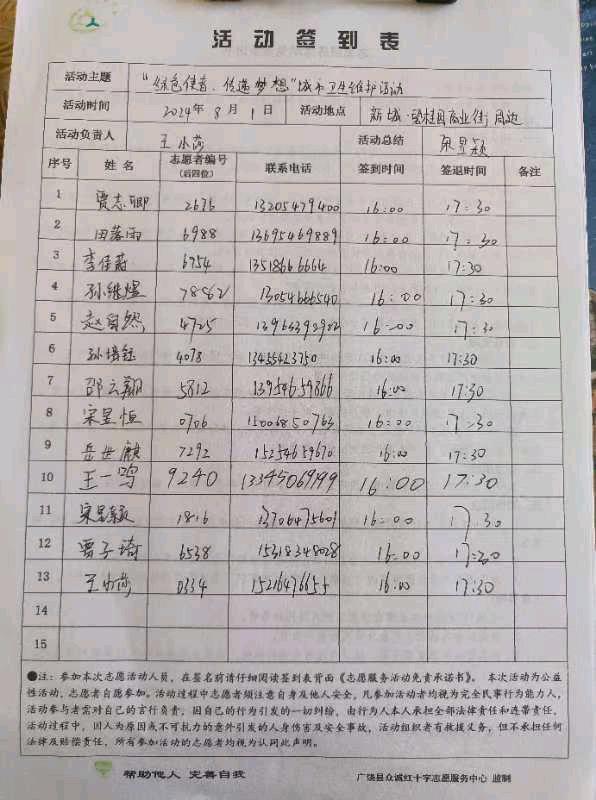 活动签到表
活动主题 “绿色使者、传递梦想”城市卫生维护活动
活动时间 2024年8月1日 活动地点 新城·碧桂园商业街周边
活动负责人 王小茜 活动总结 宋昱颖
序号 姓名 志愿者编号(后四位) 联系电话 签到时间 签退时间 备注
1 贾志卿 2676 13205479400 16:00 17:30
2 田落雨 6988 13695469889 16:00 17:30
3 李佳蔚 6754 13518666664 16:00 17:30
4 孙继煜 13054666540 16:00 17:30
5 4725 16:00 17:30
6 孙培钰 4078 13455423750 16:00 17:30
7 邵云翔 5812 13954659866 16:00 17:30
8 宋昱恒 0706 15006850763 16:00 17:30
9 岳世麒 7292 15254659670 16:00 17:30
10 王一鸣 9240 13345069199 16:00 17:30
11 宋昱颖 1816 16:00 17:30
12 贾子琦 6538 15318348028 16:00 17:30
13 0334 15216476655 16:00 17:30
14
15
●注：参加本次志愿活动人员，在签名前请仔细阅读签到表背面《志愿服务活动免责承诺书》。本次活动为公益
性活动，志愿者自愿参加。活动过程中志愿者须注意自身及他人安全，凡参加活动者均视为完全民事行为能力人，
活动参与者需对自己的言行负责，因自己的行为引发的一切纠纷，由行为人本人承担全部法律责任和连带责任，
活动过程中，因人为原因或不可抗力的意外引发的人身伤害及安全事故，活动组织者有救援义务，但不承担任何
法律及赔偿责任，所有参加活动的志愿者均视为认同此声明。
帮助他人 完善自我 广饶县众诚红十字志愿服务中心 监制